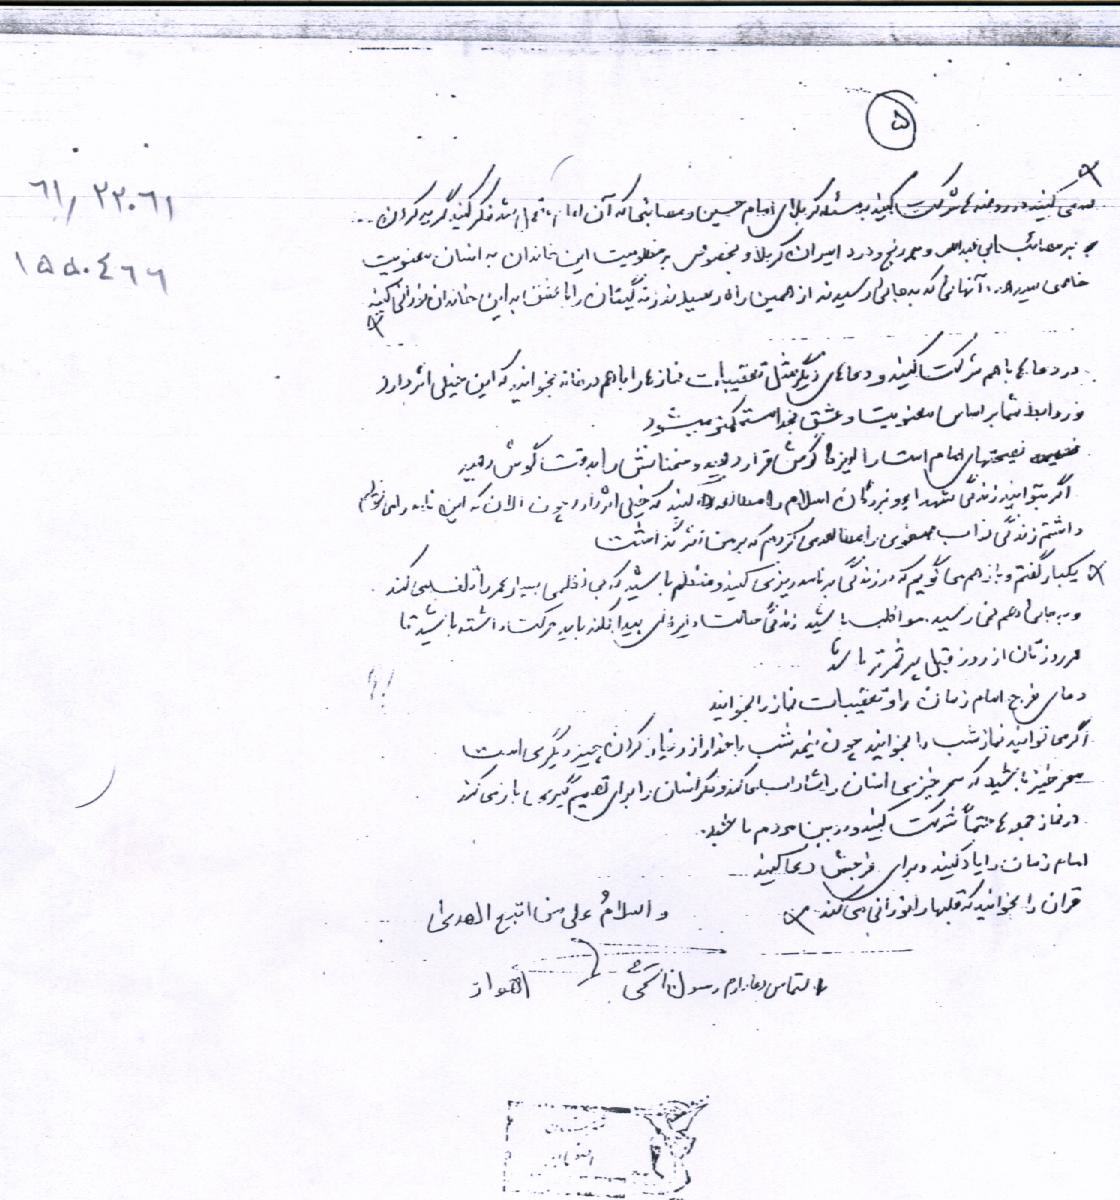 ۵
۶۱/۲۲۰۶۱
۱۵۵۰۴۶۶
می کنید در روضه ها شرکت کنید به مسئله کربلای امام حسین و مصائبی که آن امام متحمل شد فکر کنید گریه کردن
بر مصائب ابی عبدالله و همه رنج و درد اسیران کربلا و بخصوص بر مظلومیت این خاندان به انسان معنویت
خاصی میدهد. آنهائی که به جائی رسیدند از همین راه رسیدند زندگیتان را با عشق به این خاندان نورانی کنید
در دعاها با هم شرکت کنید و دعاهای دیگر مثل تعقیبات نمازها را با هم در خانه بخوانید که این خیلی اثر دارد
و روابط شما بر اساس معنویت و عشق بخدا مستحکمتر میشود
نصیحتهای امام امت را آویزه گوش قرار دهید و سخنانش را بدقت گوش دهید
اگر بتوانید زندگی شهدا و بزرگان اسلام را مطالعه کنید که خیلی اثر دارد چون الان که این نامه را می نویسم
داشتم زندگی نواب صفوی را مطالعه می کردم که بر من اثر گذاشت
یکبار گفتم و باز هم می گویم که در زندگی برنامه ریزی کنید و منظم باشید که بی نظمی بسیار عمر را تلف می کند
و به جائی هم نمی رسید. مواظب باشید زندگی حالت پیدا نکند باید حرکت داشته باشید تا
هر روزتان از روز قبل پر ثمرتر باشد
دعای فرج امام زمان و تعقیبات نماز را بخوانید
اگر می توانید نماز شب را بخوانید چون نیمه شب با خدا راز و نیاز کردن چیز دیگری است
سحر خیز باشید که سحر خیزی انسان را شاداب می کند و فکر انسان را برای تصمیم گیری باز می کند
در نماز جمعه ها حتماً شرکت کنید و در بین مردم باشید.
امام زمان را یاد کنید و برای فرجش دعا کنید
قران را بخوانید که قلبها را نورانی می کند
والسلام علی من اتبع الهدی
التماس دعا دارم رسول
اهواز